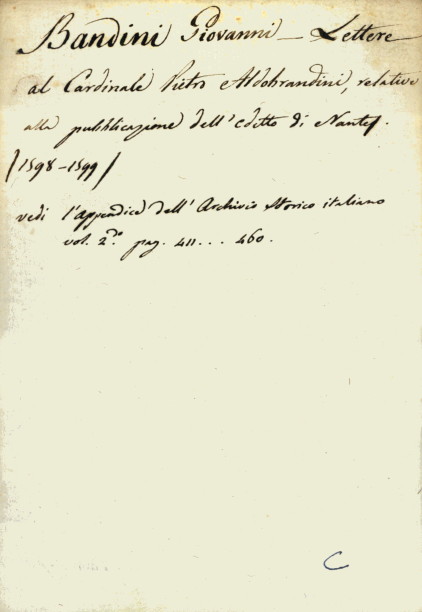 Bandini Giovanni – Lettere
al Cardinale Pietro Aldobrandini, relative
alla pubblicazione dell'Editto di Nantes.
(1598-1599)
vedi l'appendice dell'Archivio Storico italiano
vol. 2.do pag. 411... 460.
C